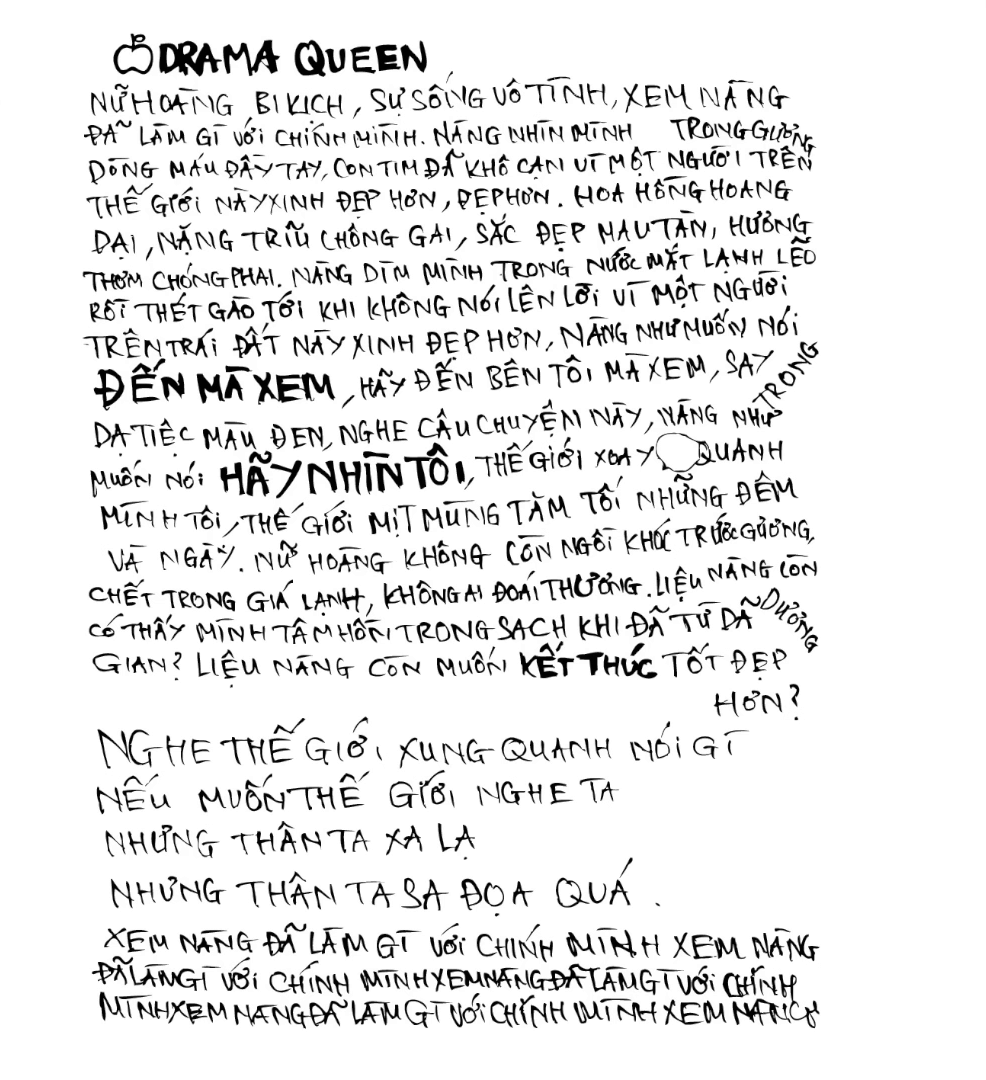 DRAMA QUEEN
NỮ HOÀNG BI KỊCH, SỰ SỐNG VÔ TÌNH, XEM NÀNG
ĐÃ LÀM GÌ VỚI CHÍNH MÌNH. NÀNG NHÌN MÌNH TRONG GƯƠNG
DÒNG MÁU ĐẦY TAY, CON TIM ĐÃ KHÔ CẠN VÌ MỘT NGƯỜI TRÊN
THẾ GIỚI NÀY XINH ĐẸP HƠN, ĐẸP HƠN. HOA HỒNG HOANG
DẠI, NẶNG TRĨU CHÔNG GAI, SẮC ĐẸP MAU TÀN, HƯƠNG
THƠM CHÓNG PHAI. NÀNG DÌM MÌNH TRONG NƯỚC MẮT LẠNH LẼO
RỒI THÉT GÀO TỚI KHI KHÔNG NÓI LÊN LỜI VÌ MỘT NGƯỜI
TRÊN TRÁI ĐẤT NÀY XINH ĐẸP HƠN, NÀNG NHƯ MUỐN NÓI
ĐẾN MÀ XEM, HÃY ĐẾN BÊN TÔI MÀ XEM, SAY TRONG
DẠ TIỆC MÀU ĐEN, NGHE CÂU CHUYỆN NÀY, NÀNG NHƯ
MUỐN NÓI HÃY NHÌN TÔI, THẾ GIỚI XOAY QUANH
MÌNH TÔI, THẾ GIỚI MỊT MÙNG TĂM TỐI NHỮNG ĐÊM
VÀ NGÀY. NỮ HOÀNG KHÔNG CÒN NGỒI KHÓC TRƯỚC GƯƠNG,
CHẾT TRONG GIÁ LẠNH, KHÔNG AI ĐOÁI THƯƠNG. LIỆU NÀNG CÒN
CÓ THẤY MÌNH TÂM HỒN TRONG SẠCH KHI ĐÃ TỪ DÃ DƯƠNG
GIAN? LIỆU NÀNG CÒN MUỐN KẾT THÚC TỐT ĐẸP
HƠN?
NGHE THẾ GIỚI XUNG QUANH NÓI GÌ
NẾU MUỐN THẾ GIỚI NGHE TA
NHƯNG THÂN TA XA LẠ
NHƯNG THÂN TA SA ĐỌA QUÁ.
XEM NÀNG ĐÃ LÀM GÌ VỚI CHÍNH MÌNH XEM NÀNG
ĐÃ LÀM GÌ VỚI CHÍNH MÌNH XEM NÀNG ĐÃ LÀM GÌ VỚI CHÍNH
MÌNH XEM NÀNG ĐÃ LÀM GÌ VỚI CHÍNH MÌNH XEM NÀNG